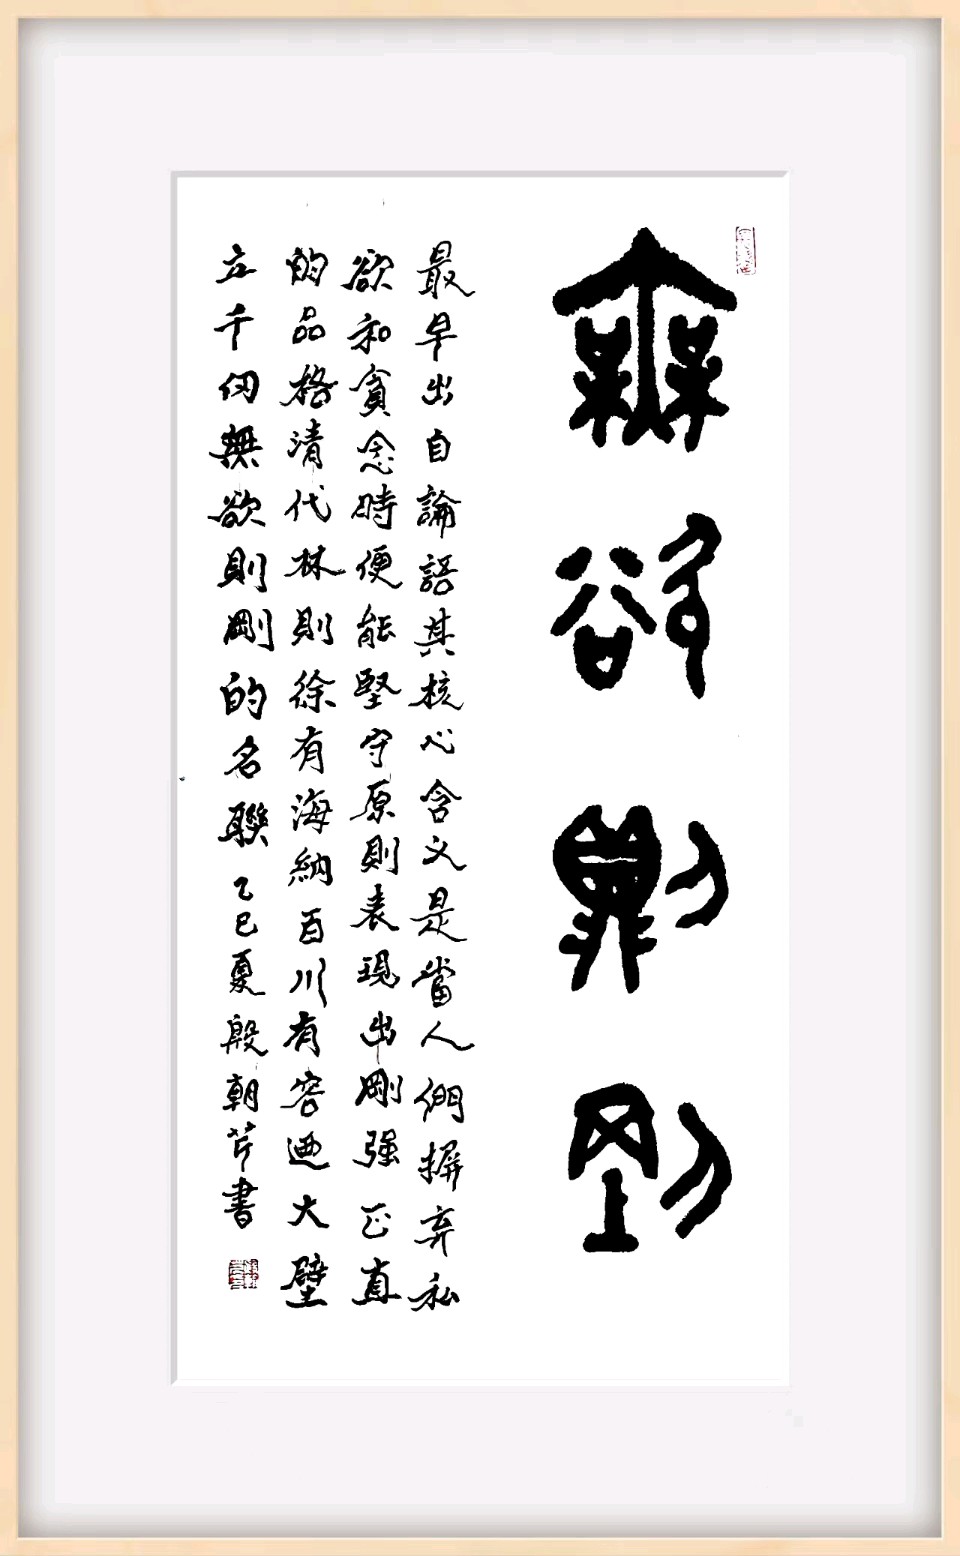 無欲則剛
最早出自論語其核心含义是當人們摒弃私
欲和貪念時便能堅守原則表現出剛强正直
的品格清代林則徐有海納百川有容迺大壁
立千仞無欲則剛的名聯乙巳夏殷朝芹書